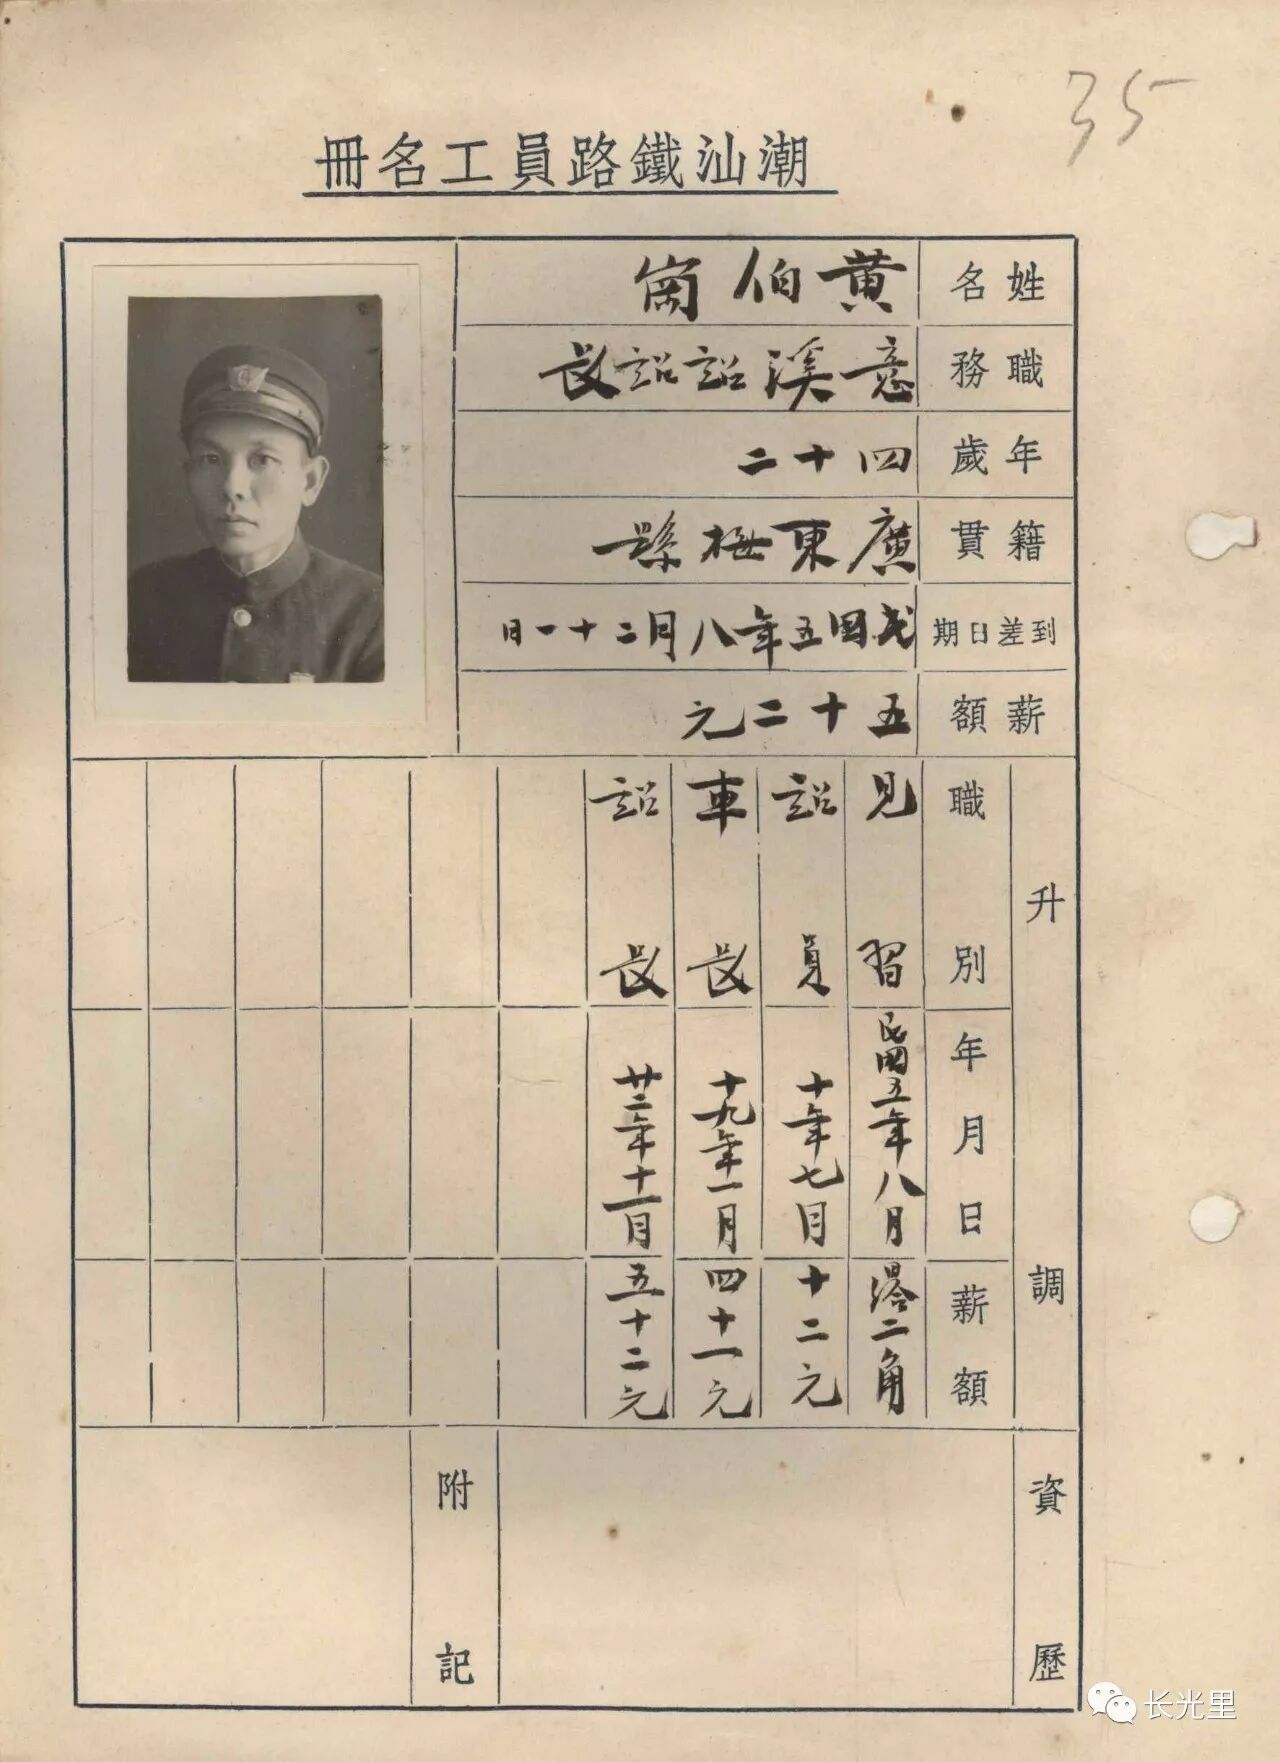 35
潮汕鐵路員工名冊
姓名 黄伯崗
職務 意溪站站長
年歲 四十二
籍貫 廣東梅縣
到差日期 民國五年八月二十一日
薪額 五十二元
升調
職別 年月日 薪額
見習 民國五年八月 二角
站員 十年七月 十二元
車長 十九年一月 四十一元
站長 廿二年十一月 五十二元
資歷
附記
长光里